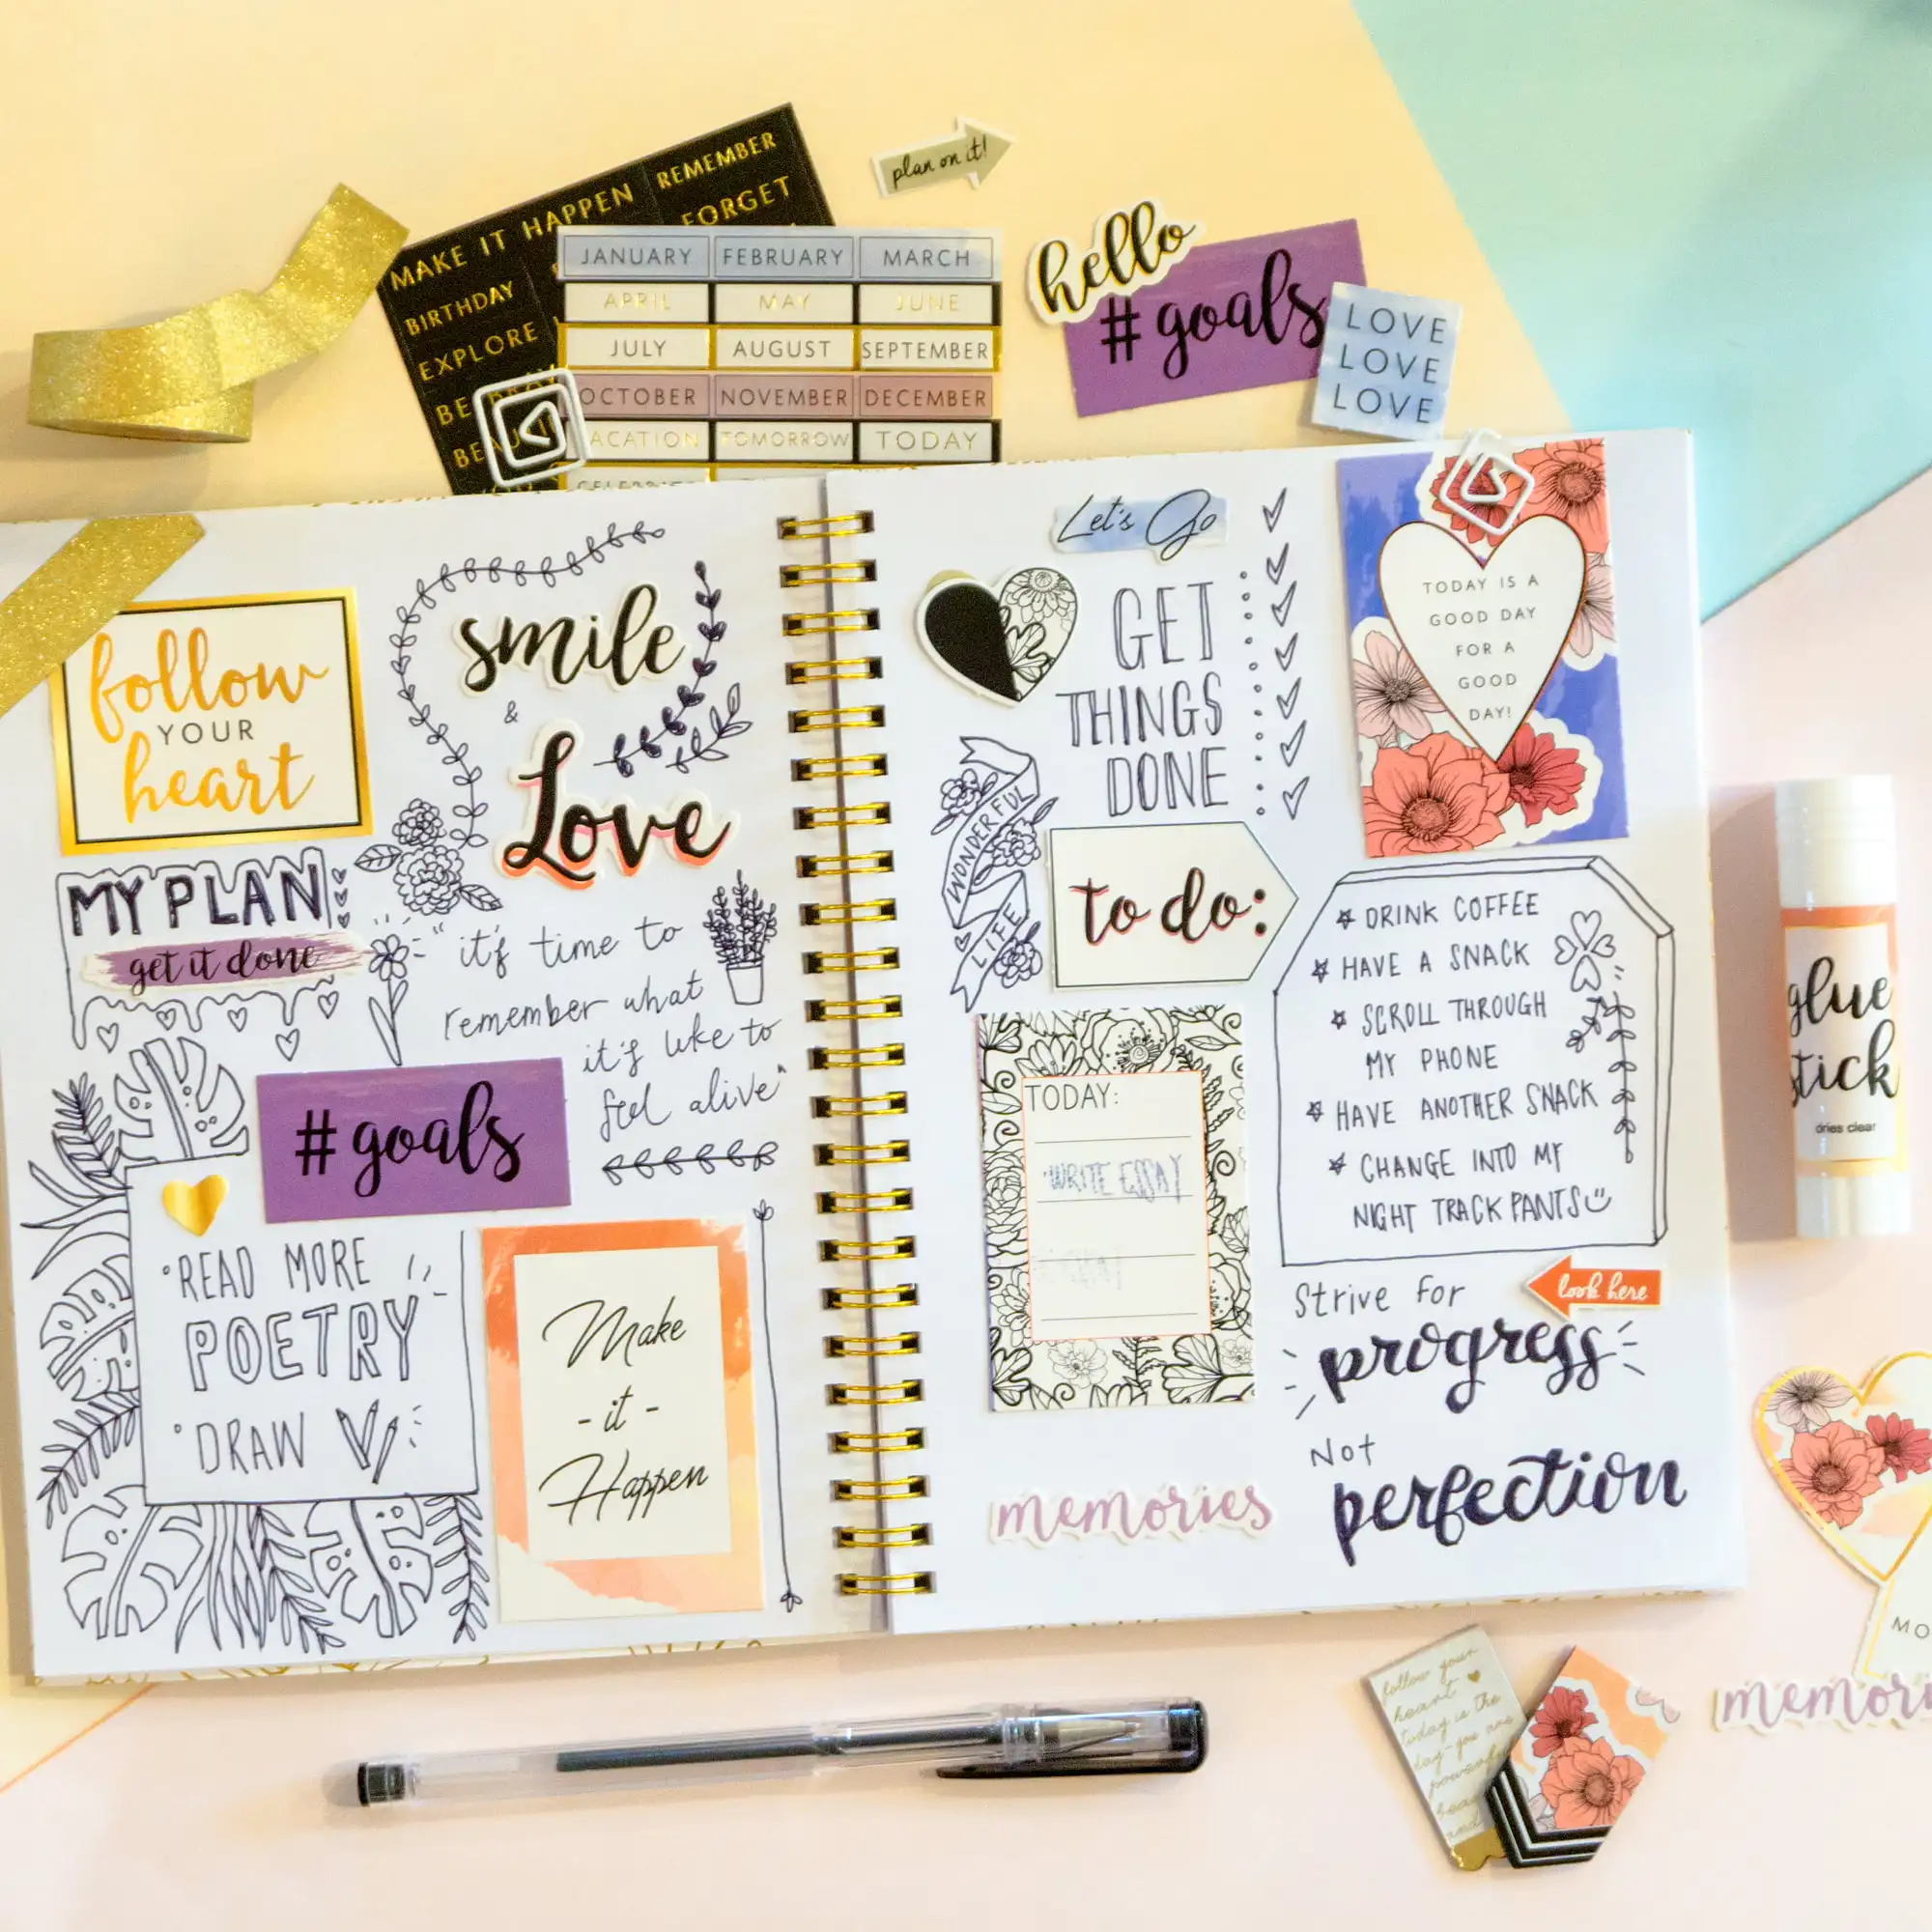 MAKE IT HAPPEN
REMEMBER
FORGET
BIRTHDAY
EXPLORE
plan on it!
JANUARY FEBRUARY MARCH
APRIL MAY JUNE
JULY AUGUST SEPTEMBER
OCTOBER NOVEMBER DECEMBER
TOMORROW TODAY
hello
#goals
LOVE
LOVE
LOVE
follow
YOUR
heart
smile
&
Love
MY PLAN
get it done
"it's time to
remember what
it's like to
feel alive"
#goals
•READ MORE
POETRY
•DRAW
Make
-it-
Happen
Let's Go
GET
THINGS
DONE
TODAY IS A
GOOD DAY
FOR A
GOOD
DAY!
WONDERFUL
LIFE
to do:
DRINK COFFEE
HAVE A SNACK
SCROLL THROUGH
MY PHONE
HAVE ANOTHER SNACK
CHANGE INTO MY
NIGHT TRACK PANTS
TODAY:
•WRITE ESSAY
look here
Strive for
progress
Not
perfection
memories
glue
stick
dries clear
follow your
heart
today is the
day you are
MO
memori